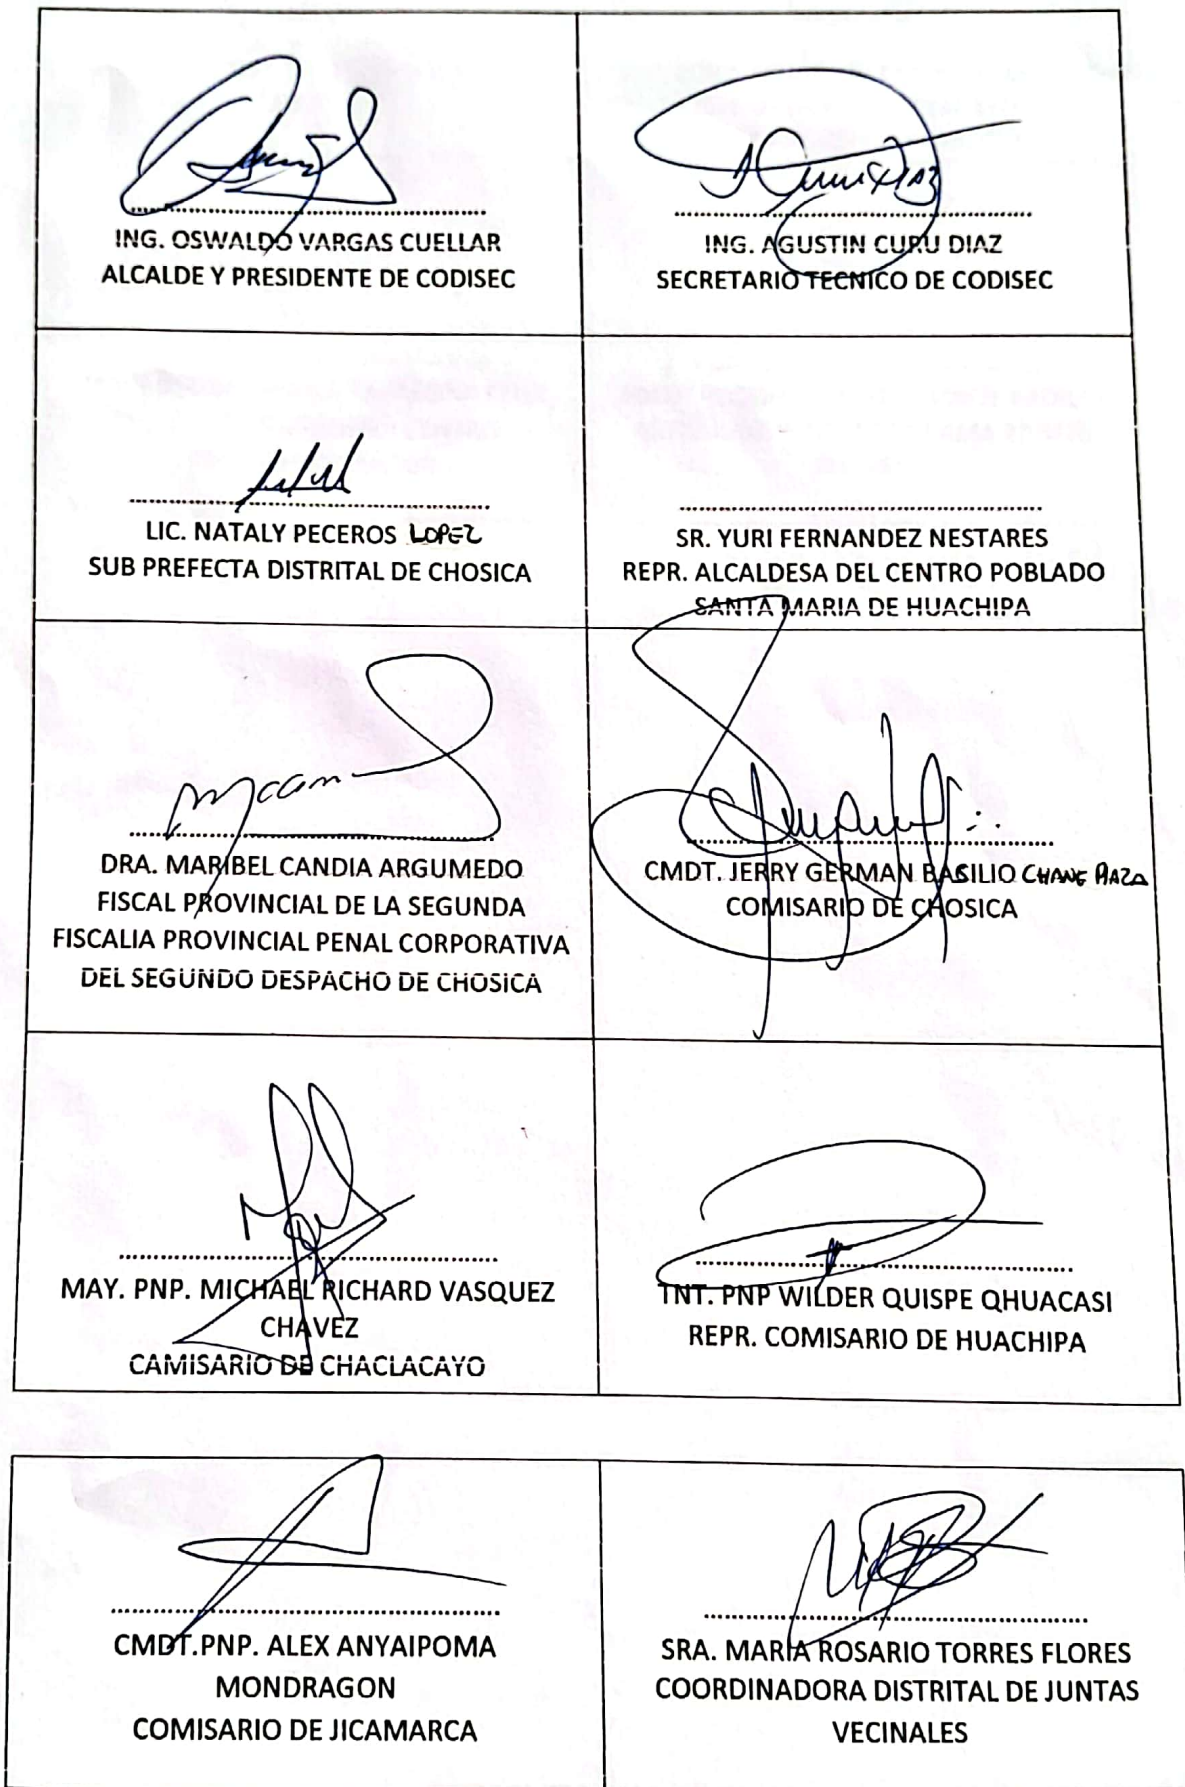 ING. OSWALDO VARGAS CUELLAR
ALCALDE Y PRESIDENTE DE CODISEC
ING. AGUSTIN CURU DIAZ
SECRETARIO TECNICO DE CODISEC
LIC. NATALY PECEROS LOPEZ
SUB PREFECTA DISTRITAL DE CHOSICA
SR. YURI FERNANDEZ NESTARES
REPR. ALCALDESA DEL CENTRO POBLADO
SANTA MARIA DE HUACHIPA
DRA. MARIBEL CANDIA ARGUMEDO
FISCAL PROVINCIAL DE LA SEGUNDA
FISCALIA PROVINCIAL PENAL CORPORATIVA
DEL SEGUNDO DESPACHO DE CHOSICA
CMDT. JERRY GERMAN BASILIO
COMISARIO DE CHOSICA
MAY. PNP. MICHAEL RICHARD VASQUEZ
CHAVEZ
CAMISARIO DE CHACLACAYO
TNT. PNP WILDER QUISPE QHUACASI
REPR. COMISARIO DE HUACHIPA
CMDT.PNP. ALEX ANYAIPOMA
MONDRAGON
COMISARIO DE JICAMARCA
SRA. MARIA ROSARIO TORRES FLORES
COORDINADORA DISTRITAL DE JUNTAS
VECINALES